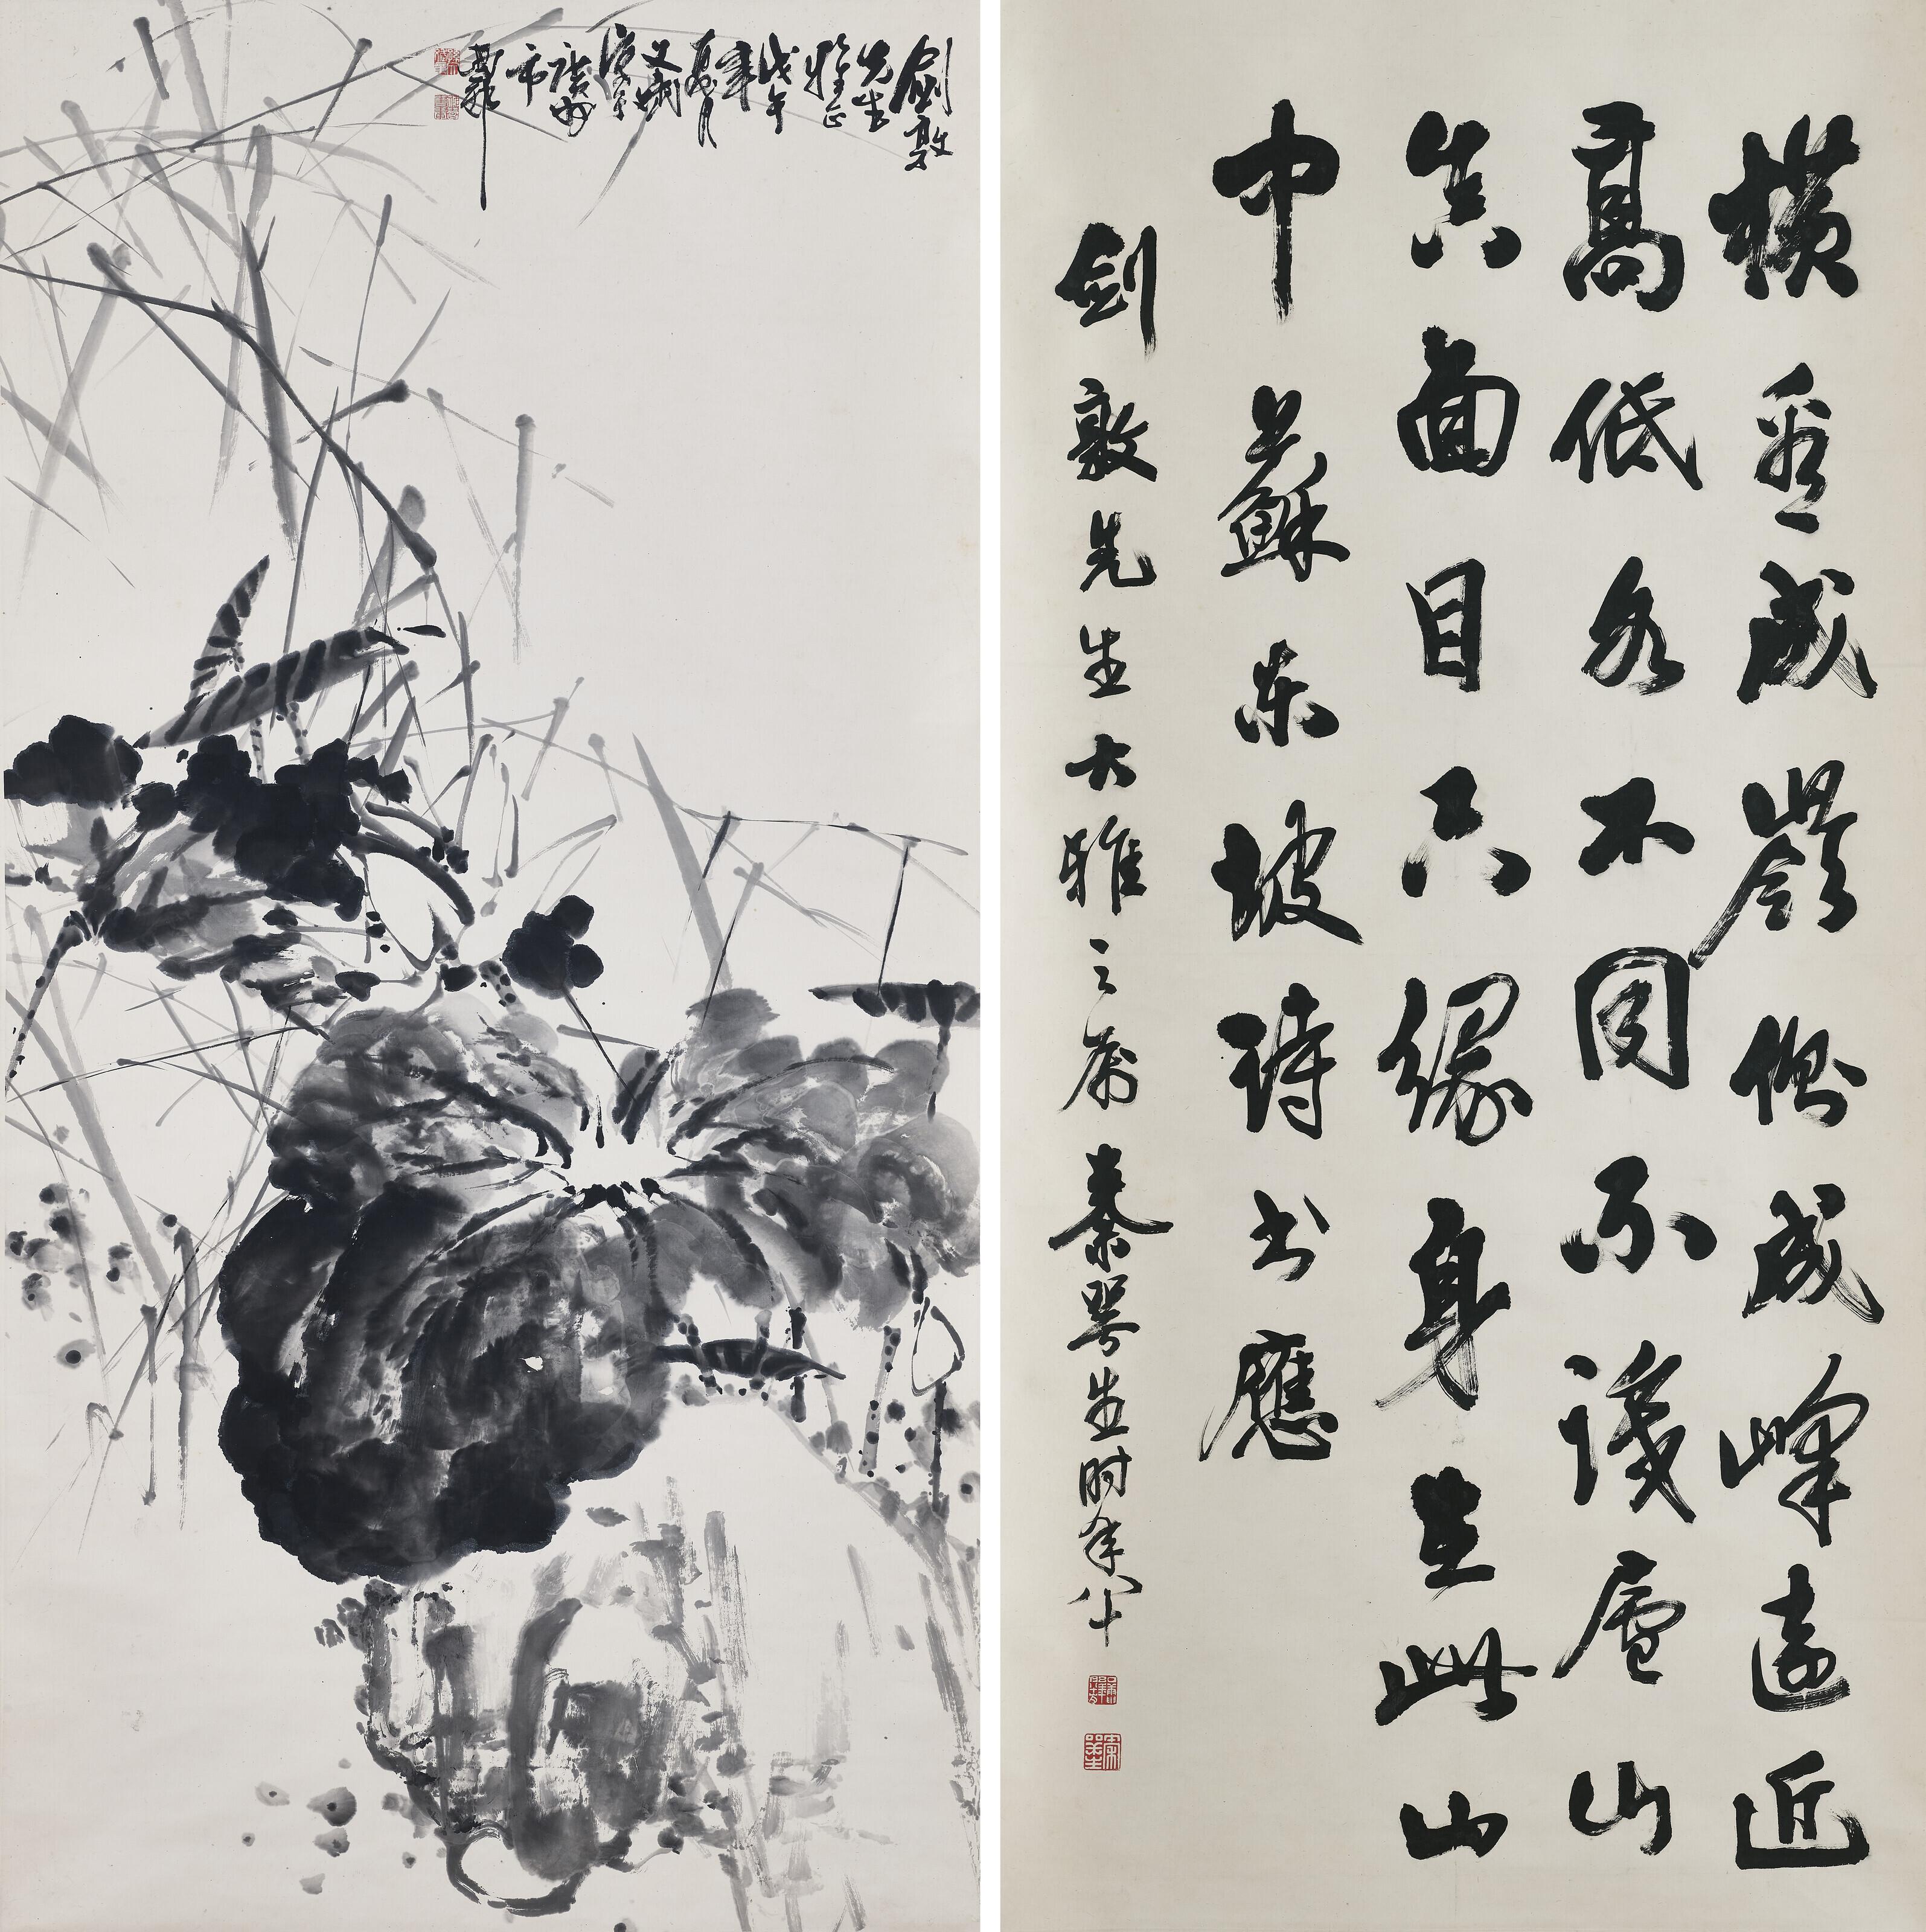 劍敦
先生
雅正
戊午
年
夏月
廣州
市
橫看成嶺側成峰遠近
高低各不同不識廬山
真面目只緣身在此山
中 蘇東坡詩書應
劍敦先生大雅之屬 秦咢生時年八十